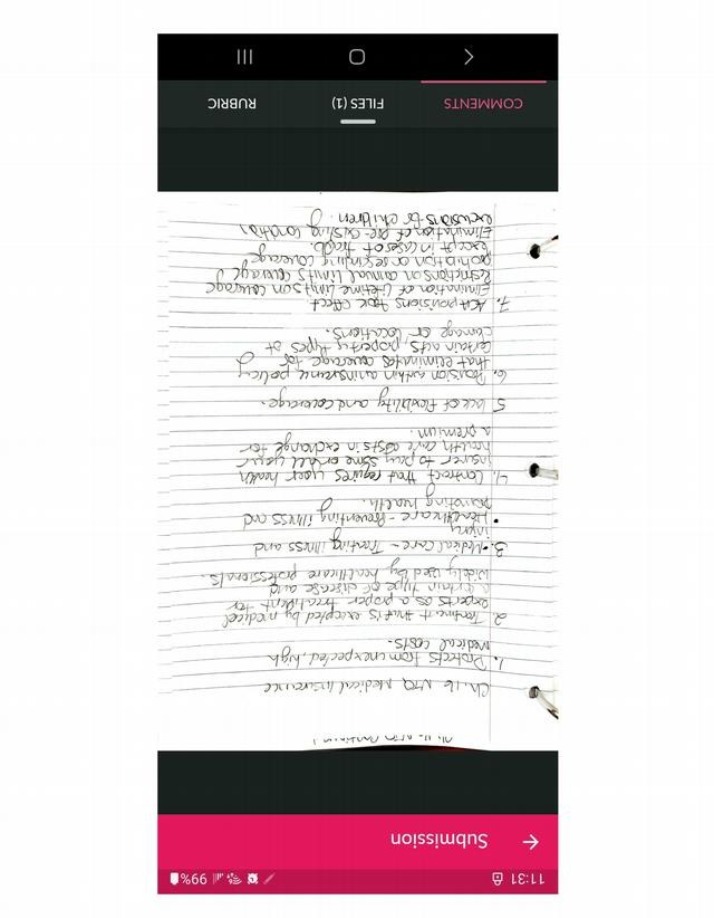 11:31 99%
Submission
Ch. 16 NTQ Medical Insurance
1. Protects from unexpected, high
medical costs.
2. Treatment that is accepted by medical
experts as a proper treatment for
a certain type of disease and
widely used by healthcare professionals.
3. • Medical Care - Treating illness and
injury
• Healthcare - Preventing illness and
promoting health.
4. Contract that requires your health
insurer to pay some or all your
health care costs in exchange for
a premium.
5 lack of flexibility and coverage.
6. Provision within a insurance policy
that eliminates coverage for
certain acts, property, types of
damage or locations.
7. ACA provisions took effect
Elimination of lifetime limits on coverage
restrictions on annual limits coverage
prohibition on rescinding coverage
except in cases of fraud.
Elimination of pre-existing condition
exclusions for children.
COMMENTS FILES (1) RUBRIC